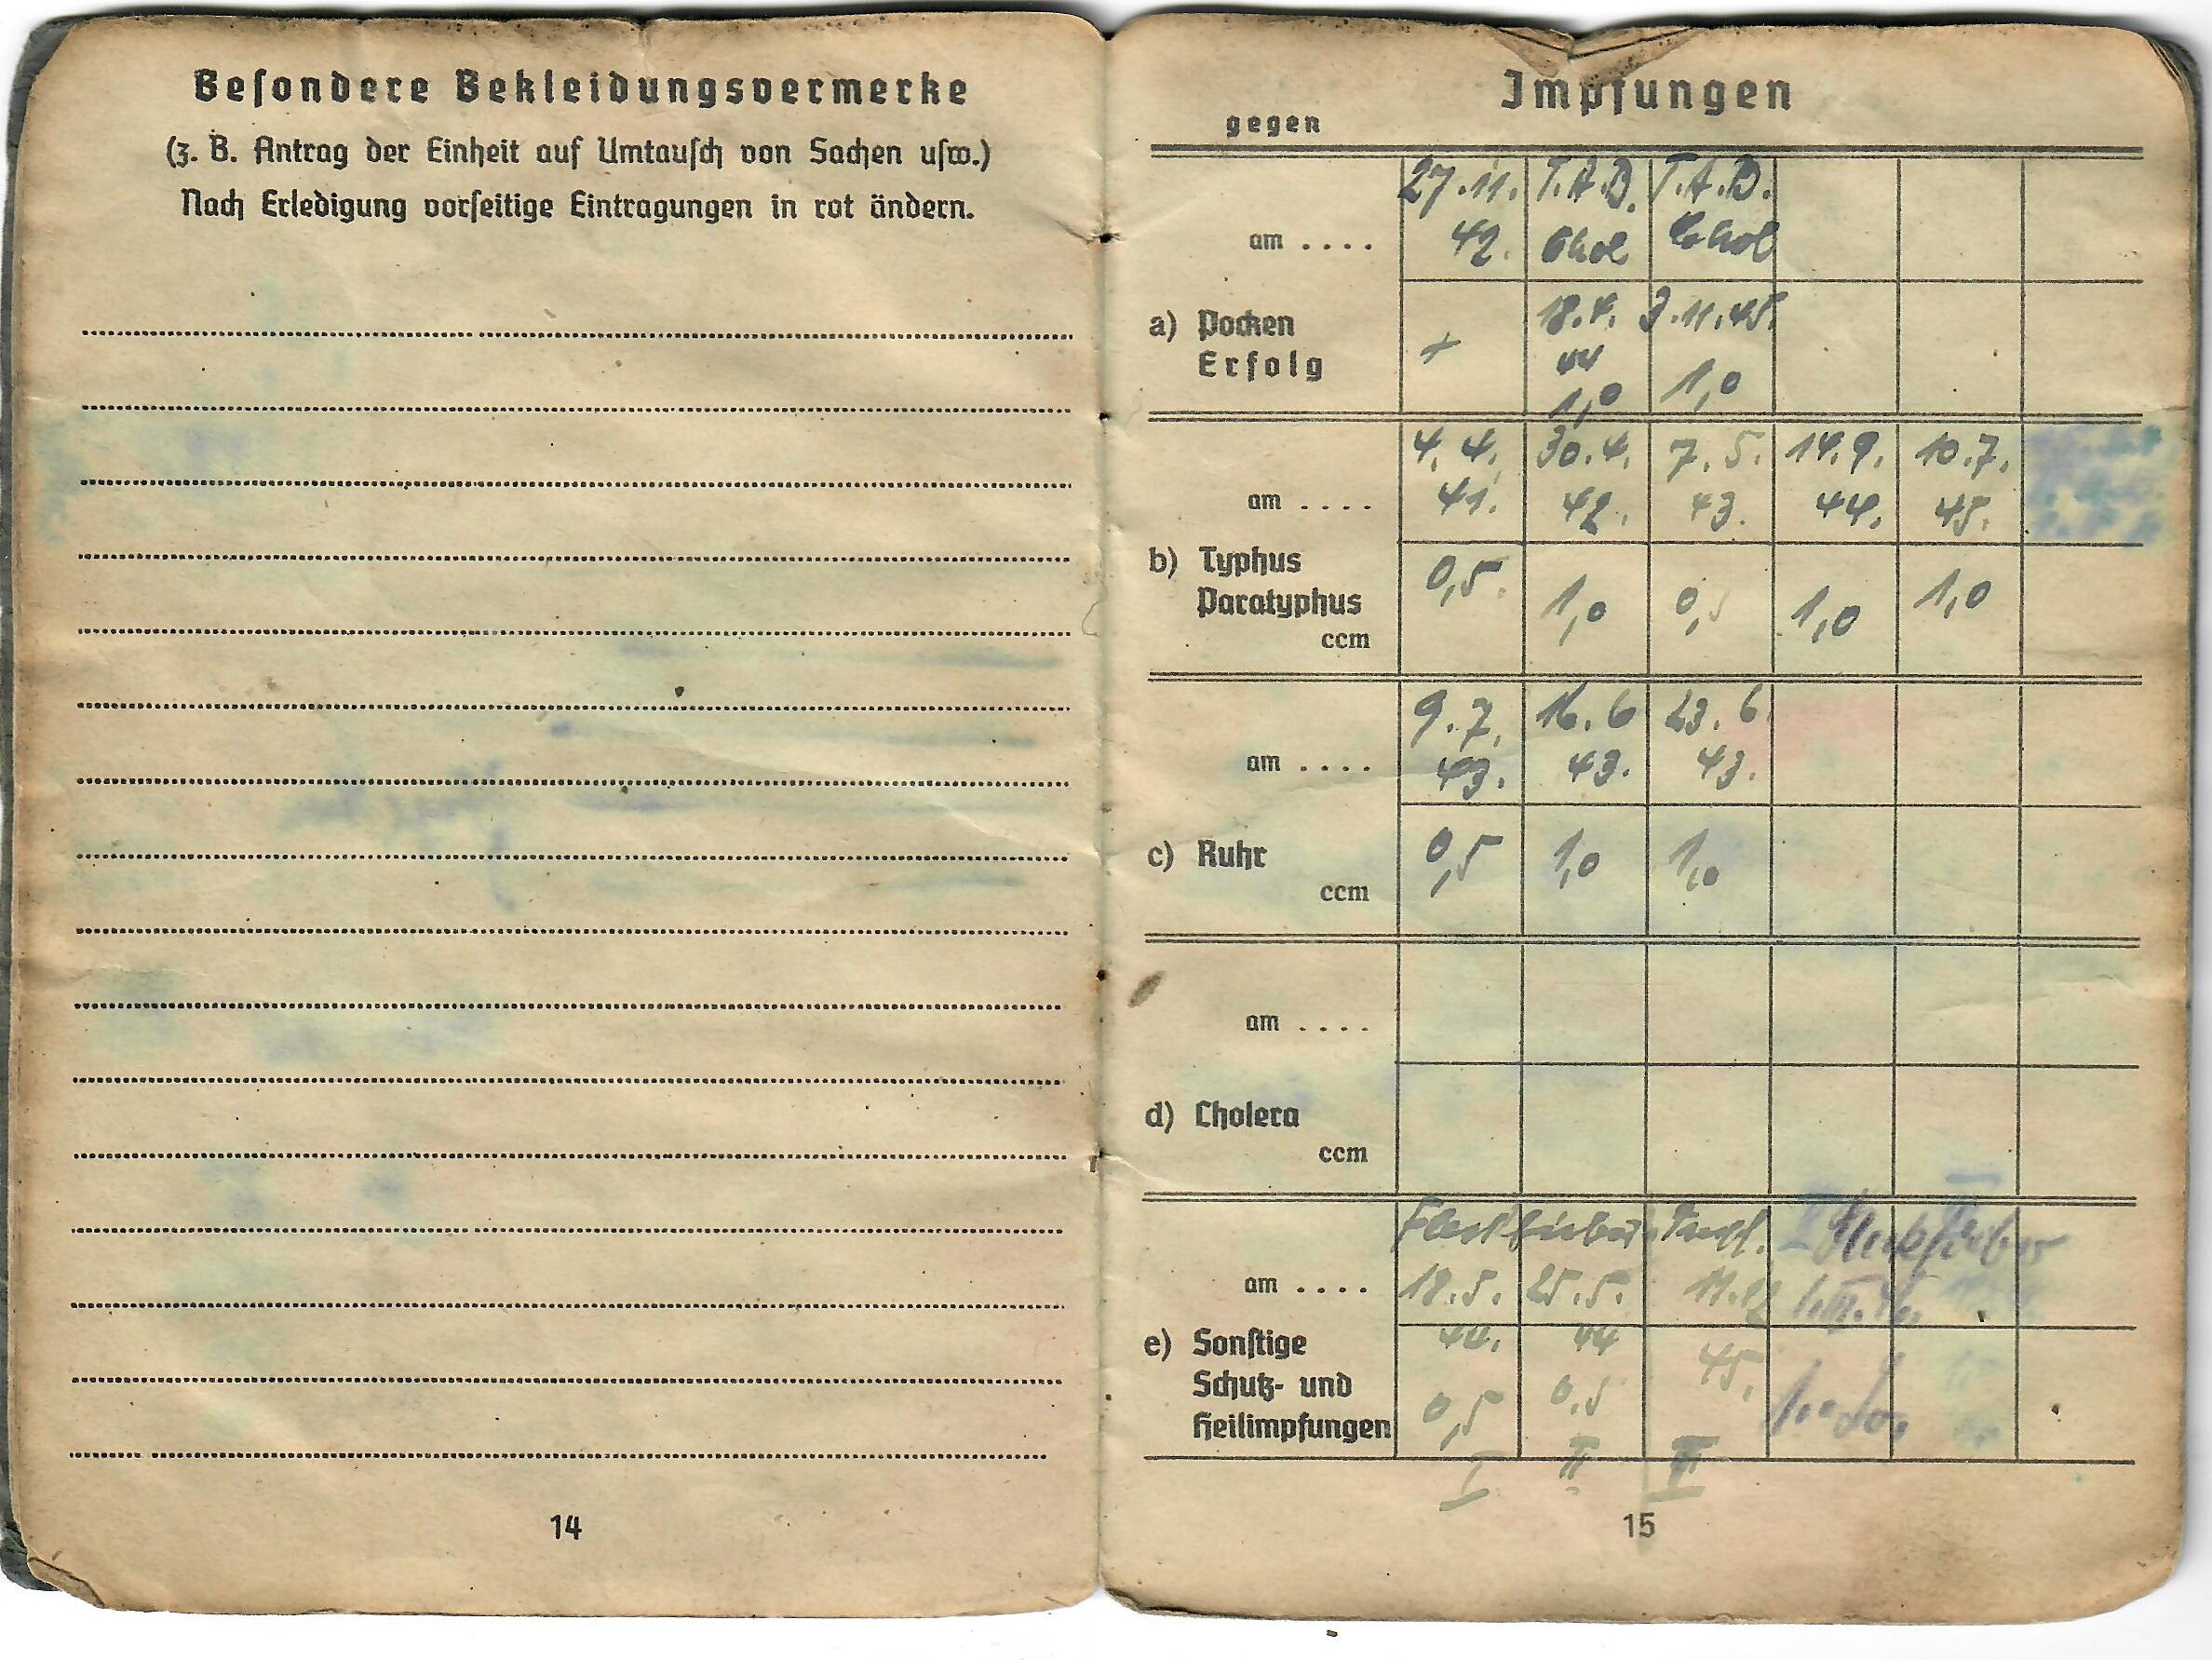 Besondere Bekleidungsvermerke
(z. B. Antrag der Einheit auf Umtausch von Sachen usw.)
Nach Erledigung vorseitige Eintragungen in rot ändern.
14
Impfungen
gegen
27.11. T.A.B. T.A.B.
am .... 42. Chol Chol
a) Pocken + 18.4. 3.11.45.
Erfolg 44
1,0 1,0
4.4. 30.4. 7.5. 14.9. 10.7.
am .... 41. 42. 43. 44. 45.
b) Typhus 0,5
Paratyphus 1,0 0,5 1,0 1,0
ccm
9.7. 16.6 23.6.
am .... 43. 43. 43.
c) Ruhr 0,5 1,0 1,0
ccm
am ....
d) Cholera
ccm
Fleckfieber
am .... 18.5. 25.5.
e) Sonstige 44. 44 45.
Schutz- und 0,5 0,5
Heilimpfungen
I II III
15